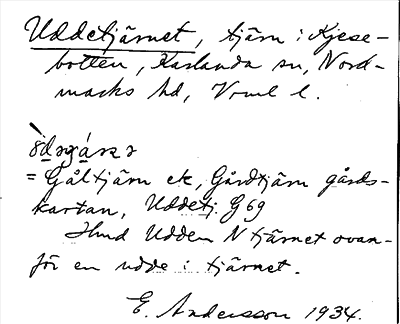 Uddetjärnet, tjärn i Kjese-
botten, Karlanda sn, Nord-
marks hd, Vrml l.
= Gåltjärn ek, Gårdtjärn gårds-
kartan, Uddetj. G69
Hmd Udden N tjärnet ovan-
för en udde i tjärnet.
E. Andersson 1934.